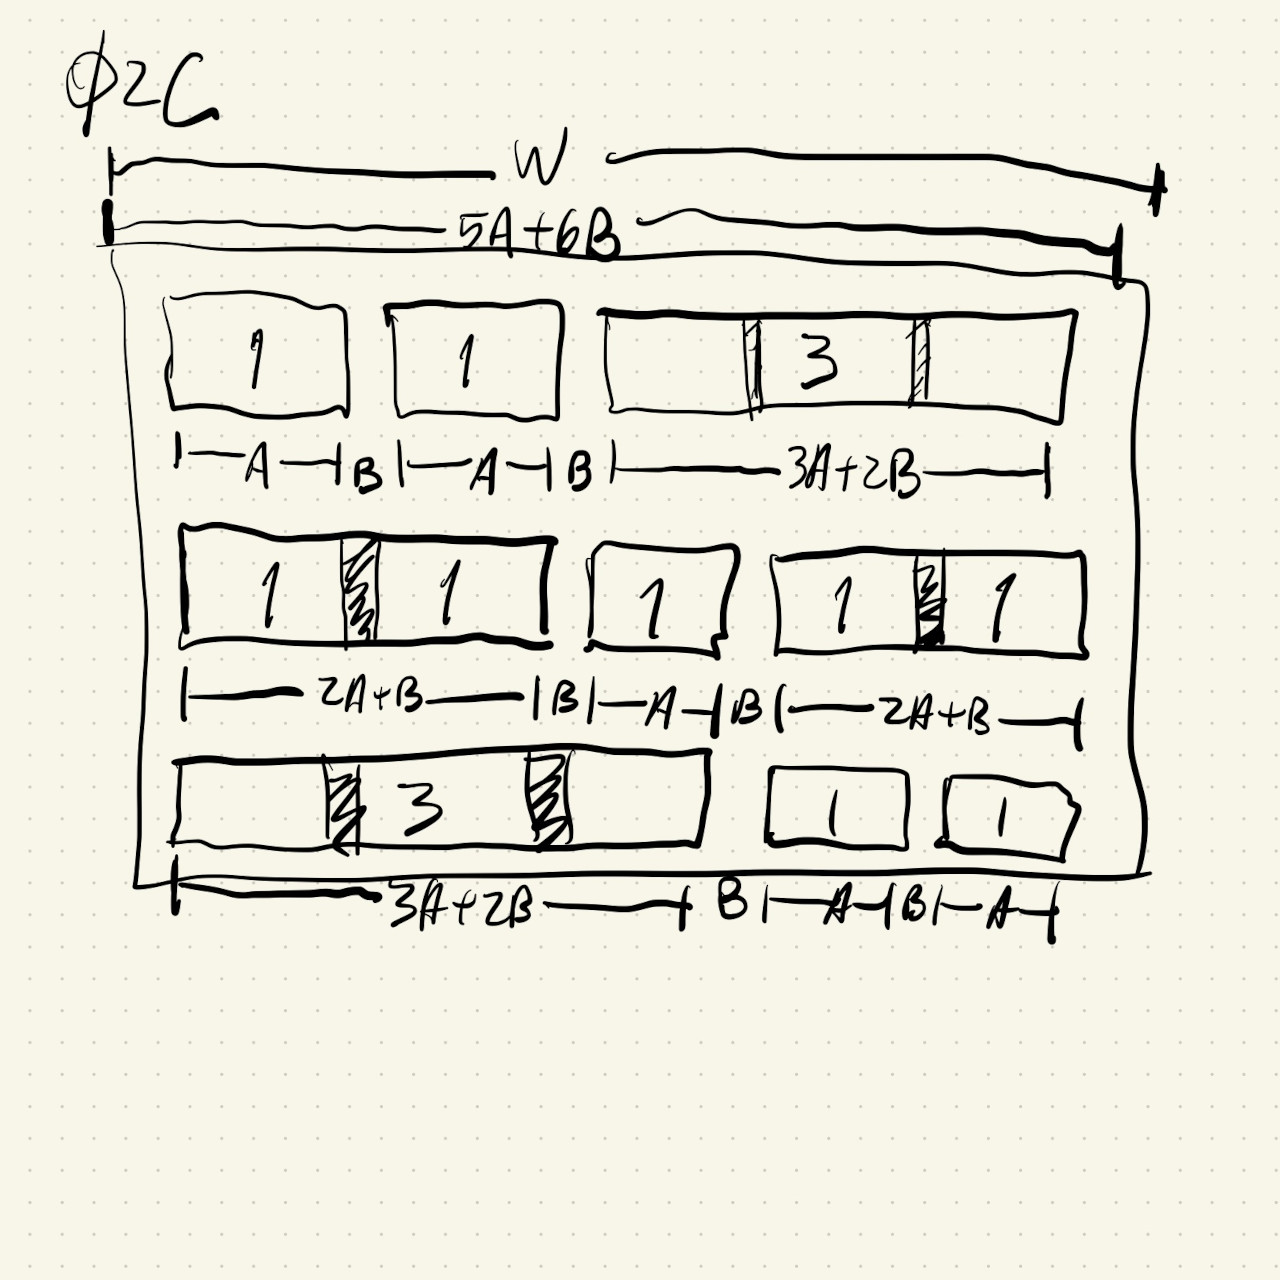 φ2C
W
5A+6B
1 1 3
A B A B 3A+2B
1 1 1 1 1
2A+B B A B 2A+B
3 1 1
3A+2B B A B A